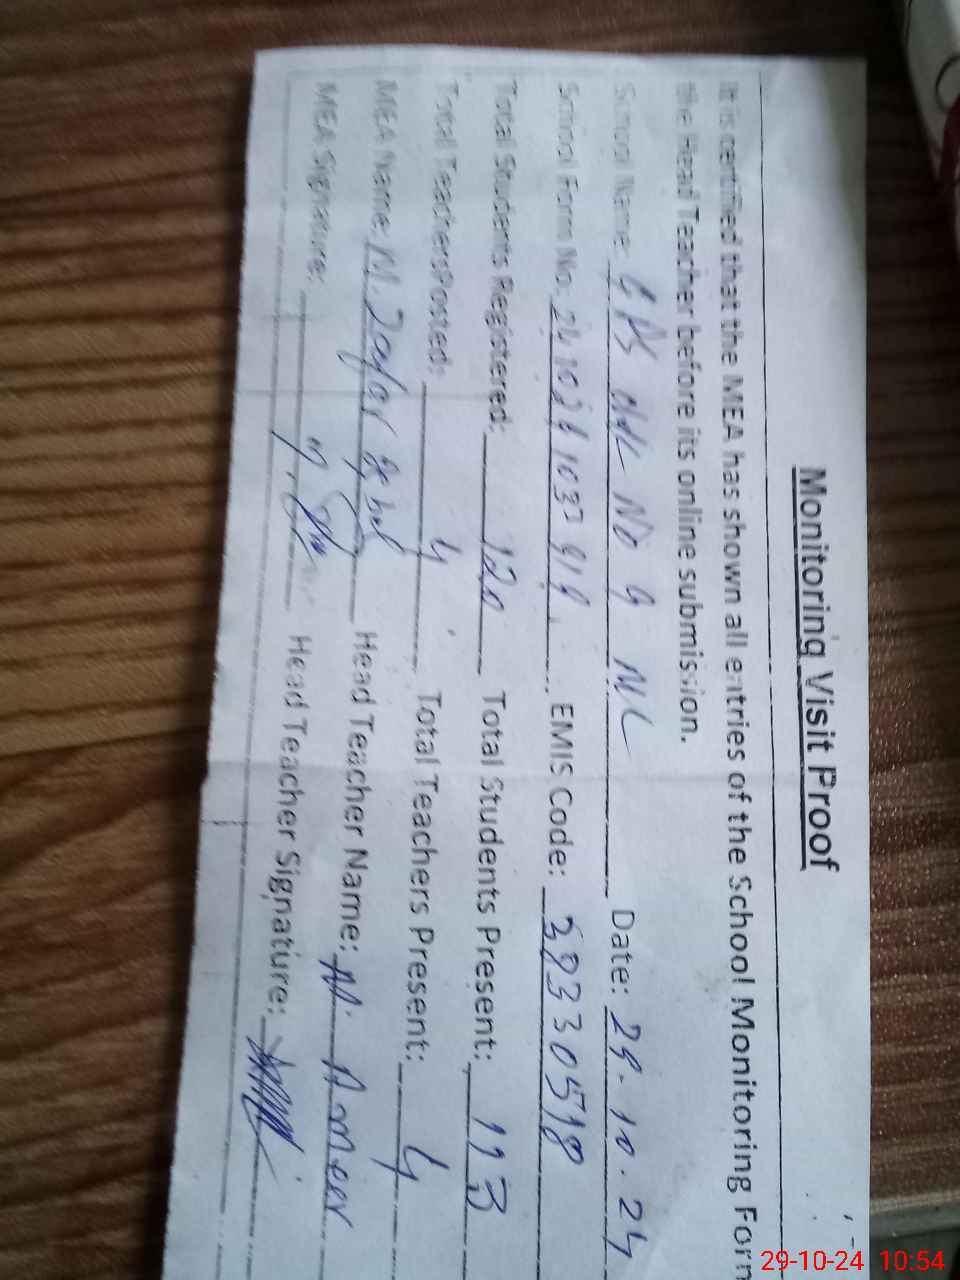 Monitoring Visit Proof
It is certified that the MEA has shown all entries of the School Monitoring Form
the Head Teacher before its online submission.
School Name: GPS chk NO 9 ML Date: 29.10.24
School Form No: EMIS Code: 38330518
Total Students Registered: 120 Total Students Present: 113
Total TeachersPosted: 4 Total Teachers Present: 4
MEA Name: M. Zafar Iqbal Head Teacher Name: M. Ameer
MEA Signature: Head Teacher Signature:
29-10-24 10:54